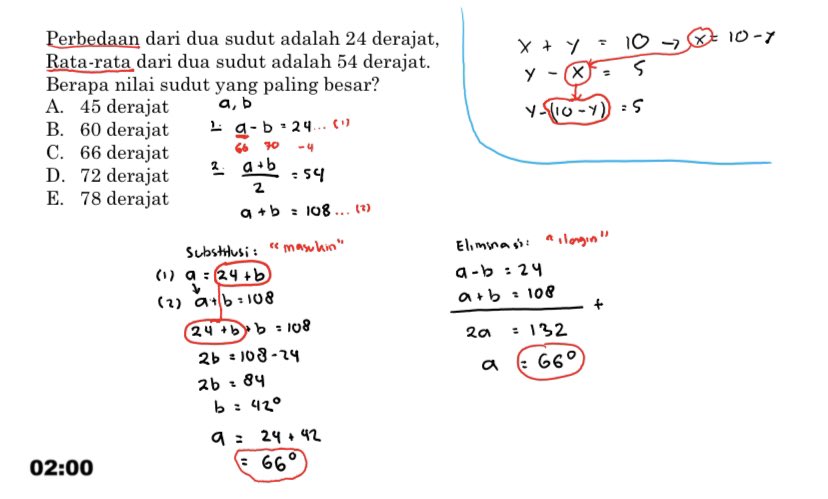 Perbedaan dari dua sudut adalah 24 derajat,
Rata-rata dari dua sudut adalah 54 derajat.
Berapa nilai sudut yang paling besar?
A. 45 derajat
B. 60 derajat
C. 66 derajat
D. 72 derajat
E. 78 derajat
a, b
1. a - b = 24 ... (1)
66 90 -4
2. a+b / 2 = 54
a + b = 108 ... (2)
x + y = 10 → x = 10 - y
y - x = 5
y - (10 - y) = 5
Substitusi : "masukin"
(1) a = 24 + b
(2) a + b = 108
24 + b + b = 108
2b = 108 - 24
2b = 84
b = 42°
a = 24 + 42
= 66°
Eliminasi : "ilangin"
a - b = 24
a + b = 108
+
2a = 132
a = 66°
02:00